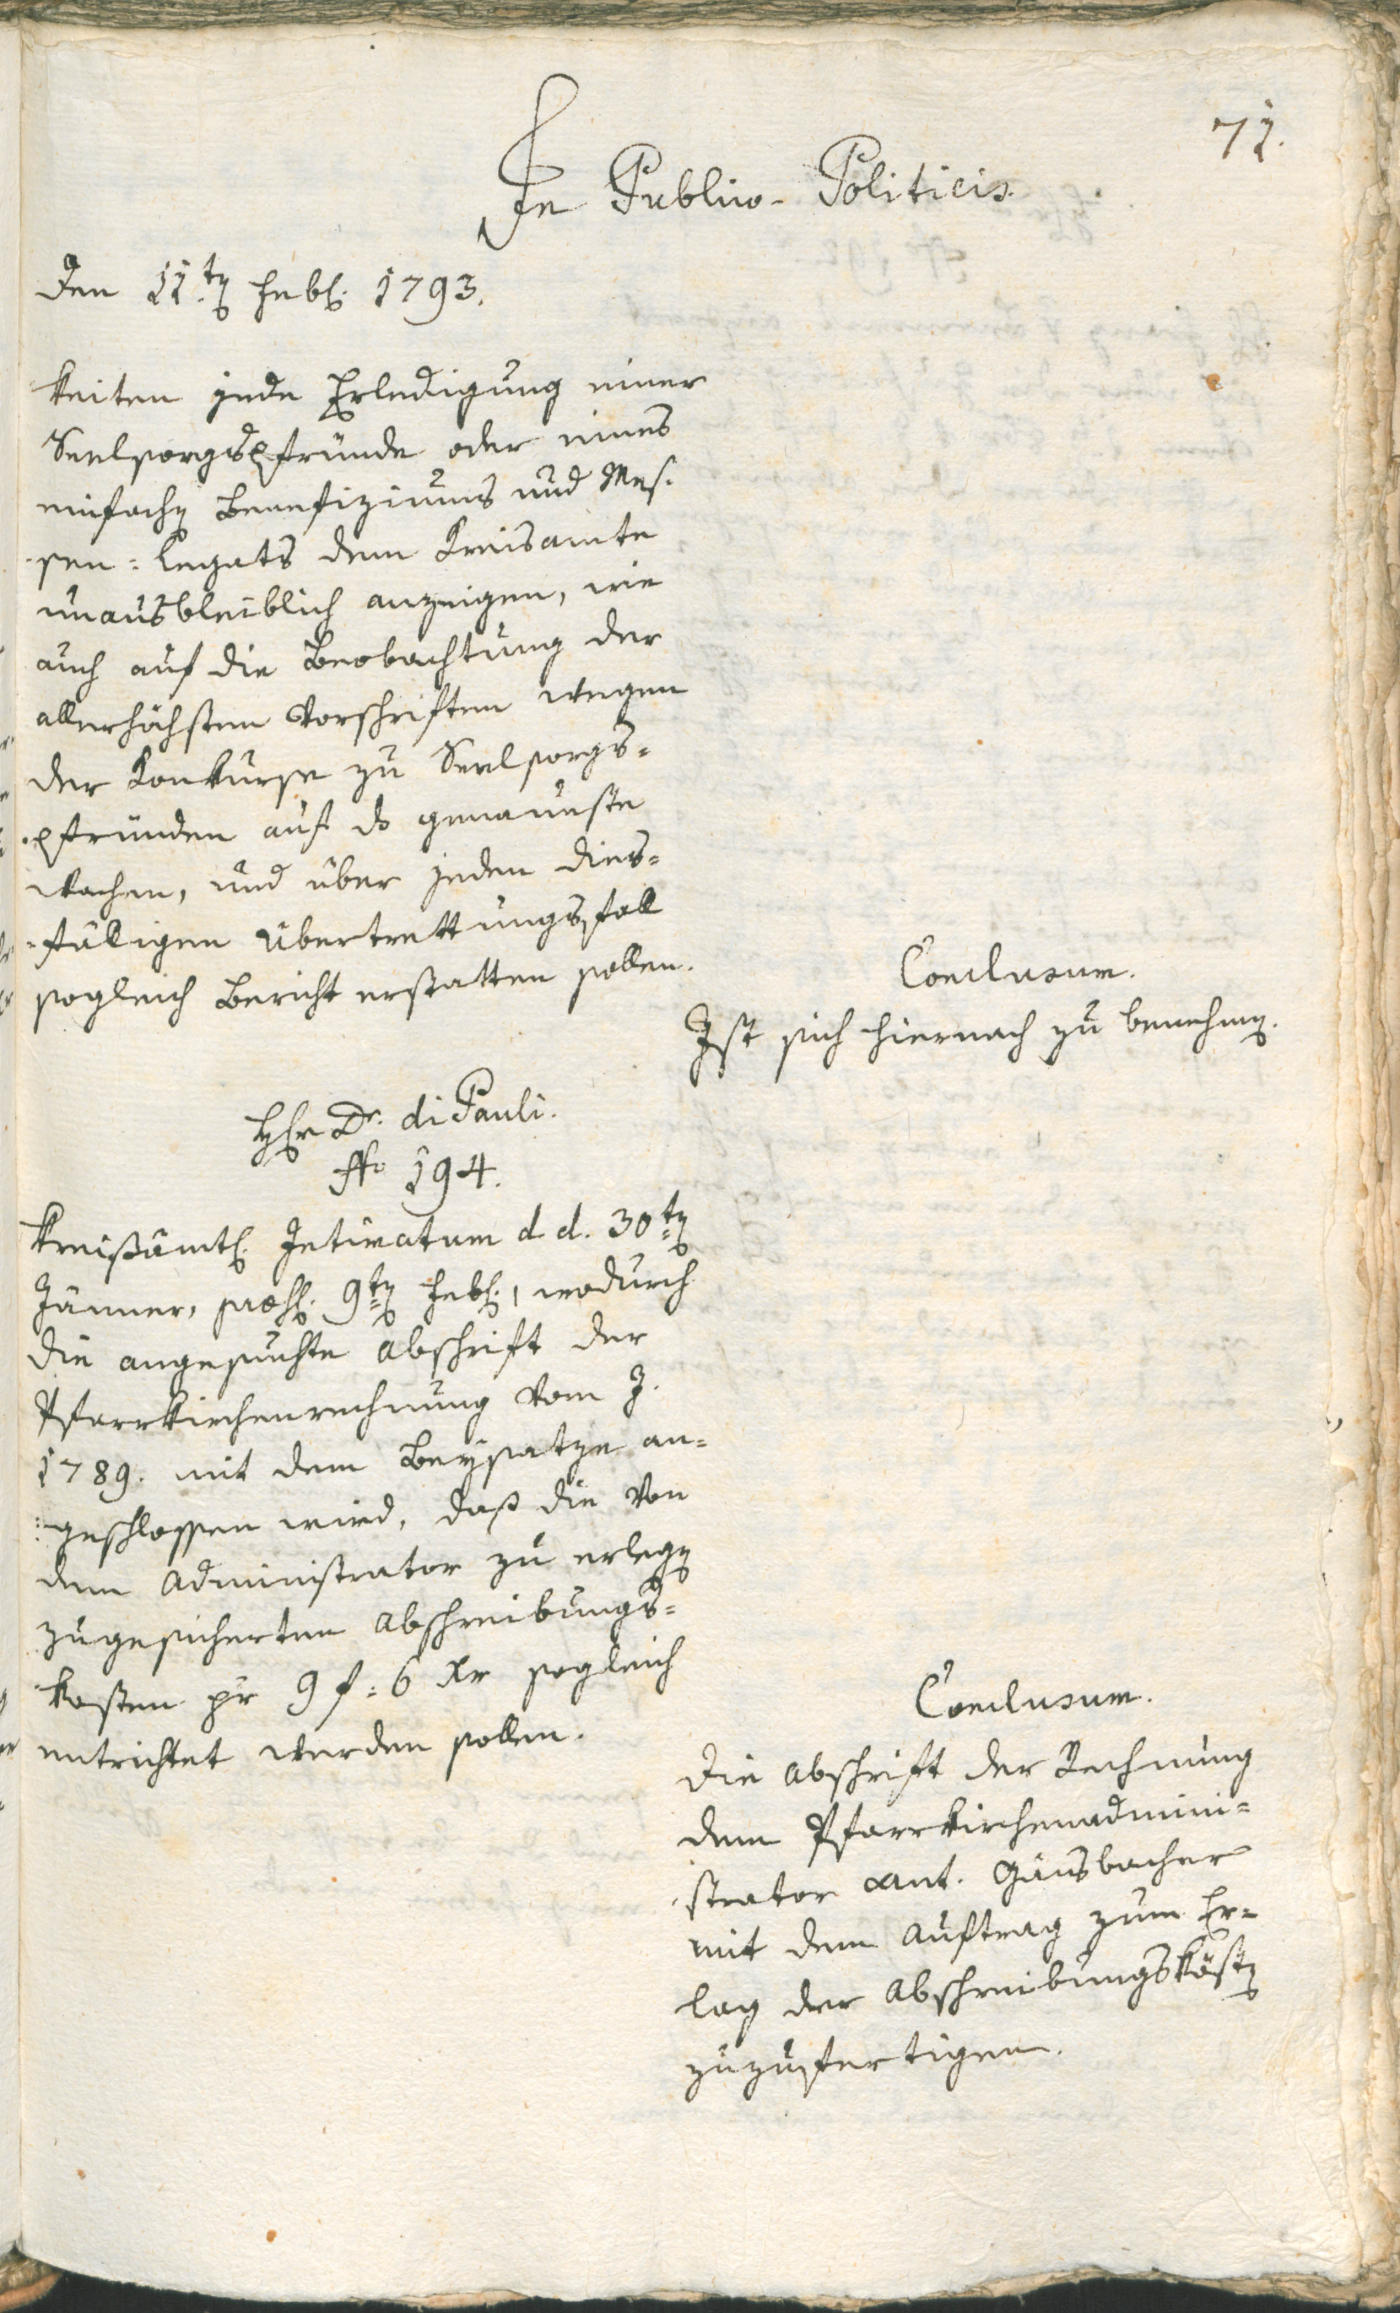 71.
In Publico-Politicis.
Den 11.ten Febr. 1793.
keiten jede Erledigung einer
Seelsorgspfründe oder eines
einfachen Benefiziums und Mes-
sen-Legats dem Kreisamte
unausbleiblich anzeigen, wie
auch auf die Beobachtung der
allerhöchsten Vorschriften wegen
der Konkurse zu Seelsorgs=
pfründen auf das genaueste
wachen, und über jeden dies=
=fälligen Übertrettungsfall
sogleich Bericht erstatten sollen.
Conclusum.
Ist sich hiernach zu benehmen.
Herr Dr. di Pauli.
No 194.
Kreisämtl. Intimatum d. d. 30ten
Jänner, præs. 9ten Febr., wodurch
die angesuchte Abschrift der
Pfarrkirchenrechnung vom J.
1789. mit dem Beysatze an=
=geschlossen wird, daß die von
dem Administrator zu erlegen
zugesicherten Abschreibungs=
kosten pr 9 f: 6 Xr sogleich
entrichtet werden sollen.
Conclusum.
Die Abschrift der Rechnung
dem Pfarrkirchenadmini=
strator Ant. Gänsbacher
mit dem Auftrag zum Er=
lag der Abschreibungskösten
zuzufertigen.